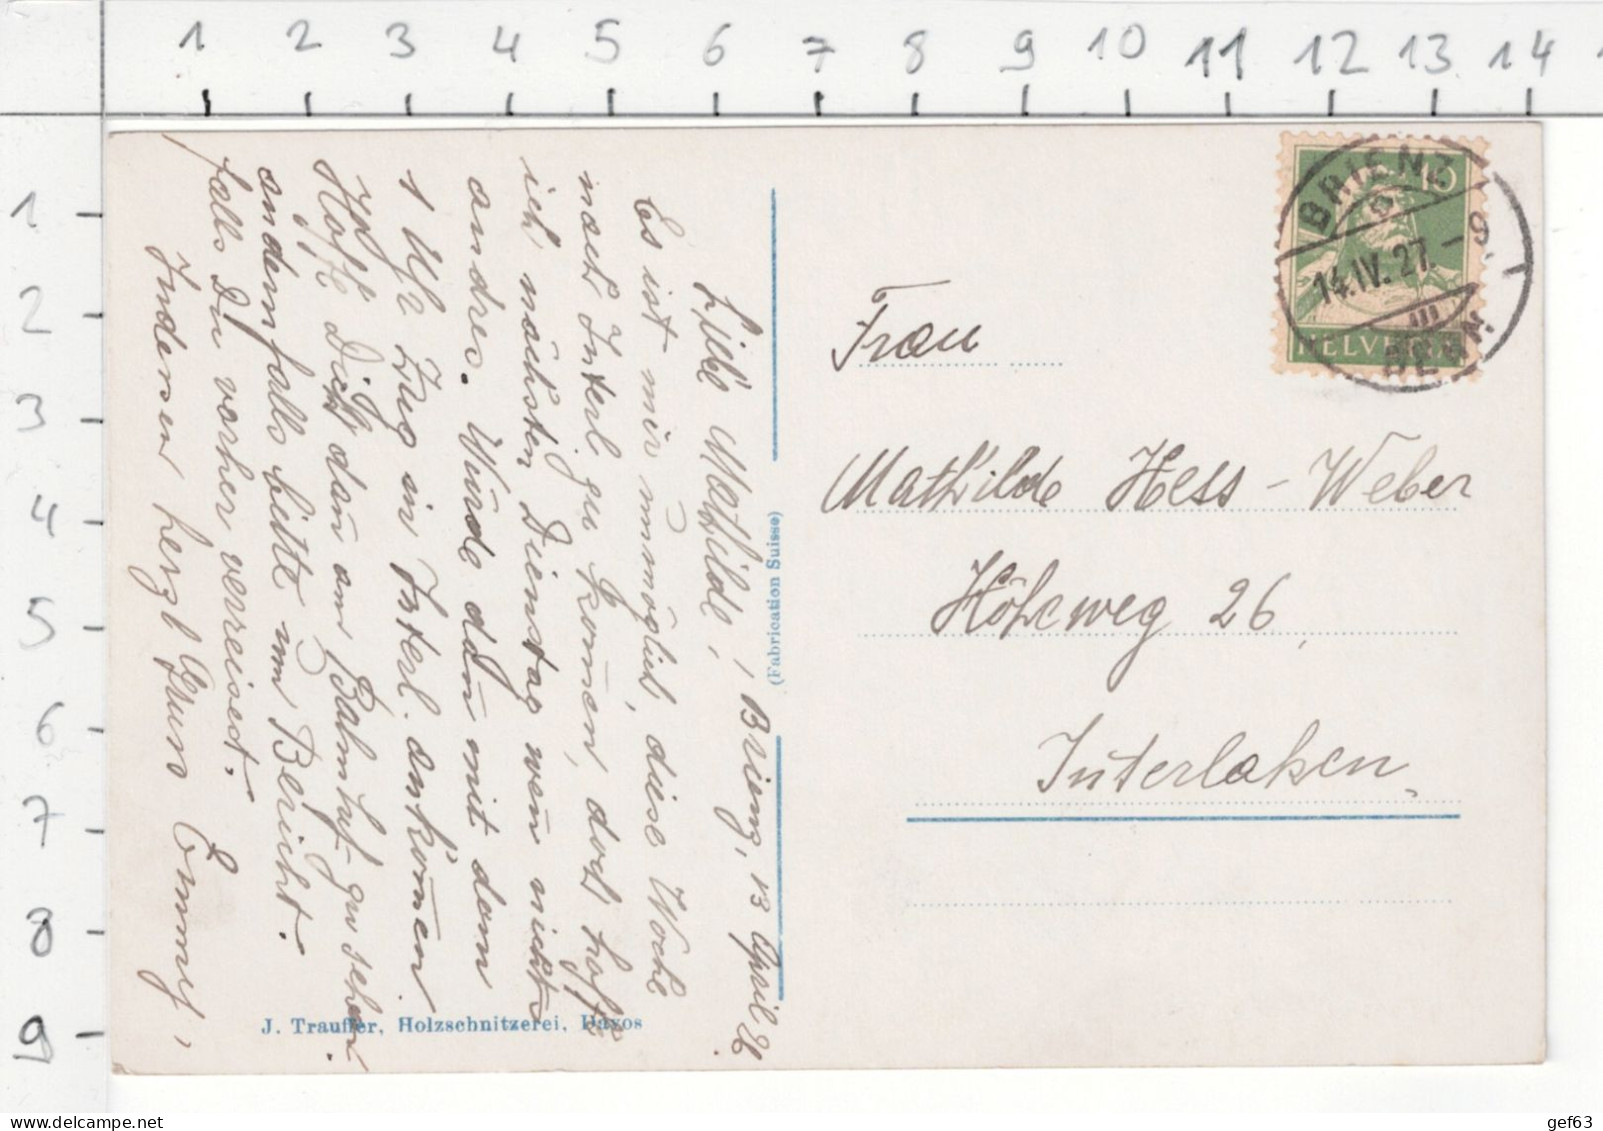 1 2 3 4 5 6 7 8 9 10 11 12 13 14
1
2
3
4
5
6
7
8
9
Brienz, 13 April 26
Liebe Mathilde!
Es ist mir unmöglich, diese Woche
nach Interl. zu kom̄en, doch hoffe
ich nächsten Dienstag wen̄ nichts
andres. Würde dan̄ mit dem
1 Uhr Zug in Interl. ankom̄en
Hoffe Dich dan̄ am Bahnhof zu sehen.
andernfalls bitte um Bericht.
falls Du vorher verreisest.
Indessen herzl. Gruss Emmy,
J. Trauffer, Holzschnitzerei, Davos
(Fabrication Suisse)
BRIENZ
14.IV.27.-9
BERN
10
HELVETIA
Frau
Mathilde Hess-Weber
Höheweg 26
Interlaken
gef63